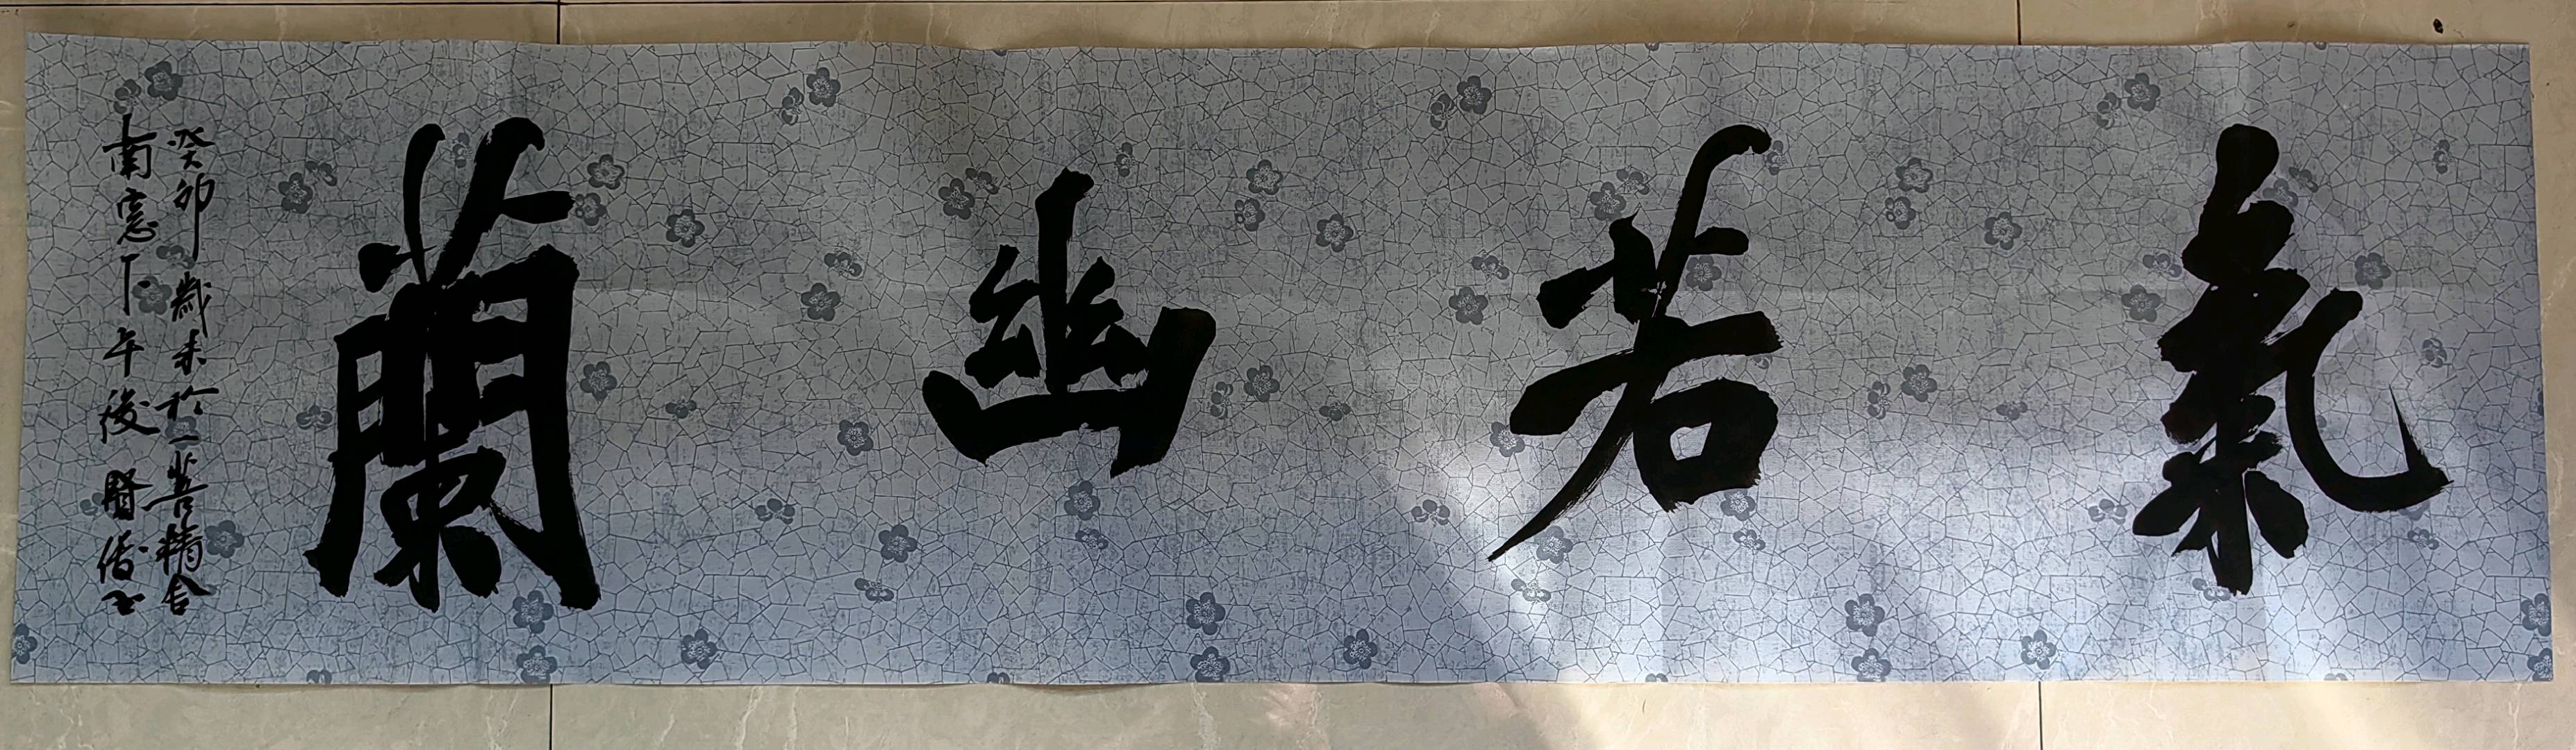 氣若幽蘭
癸卯歲末於一菩精舍
南窻下午後賢俊书